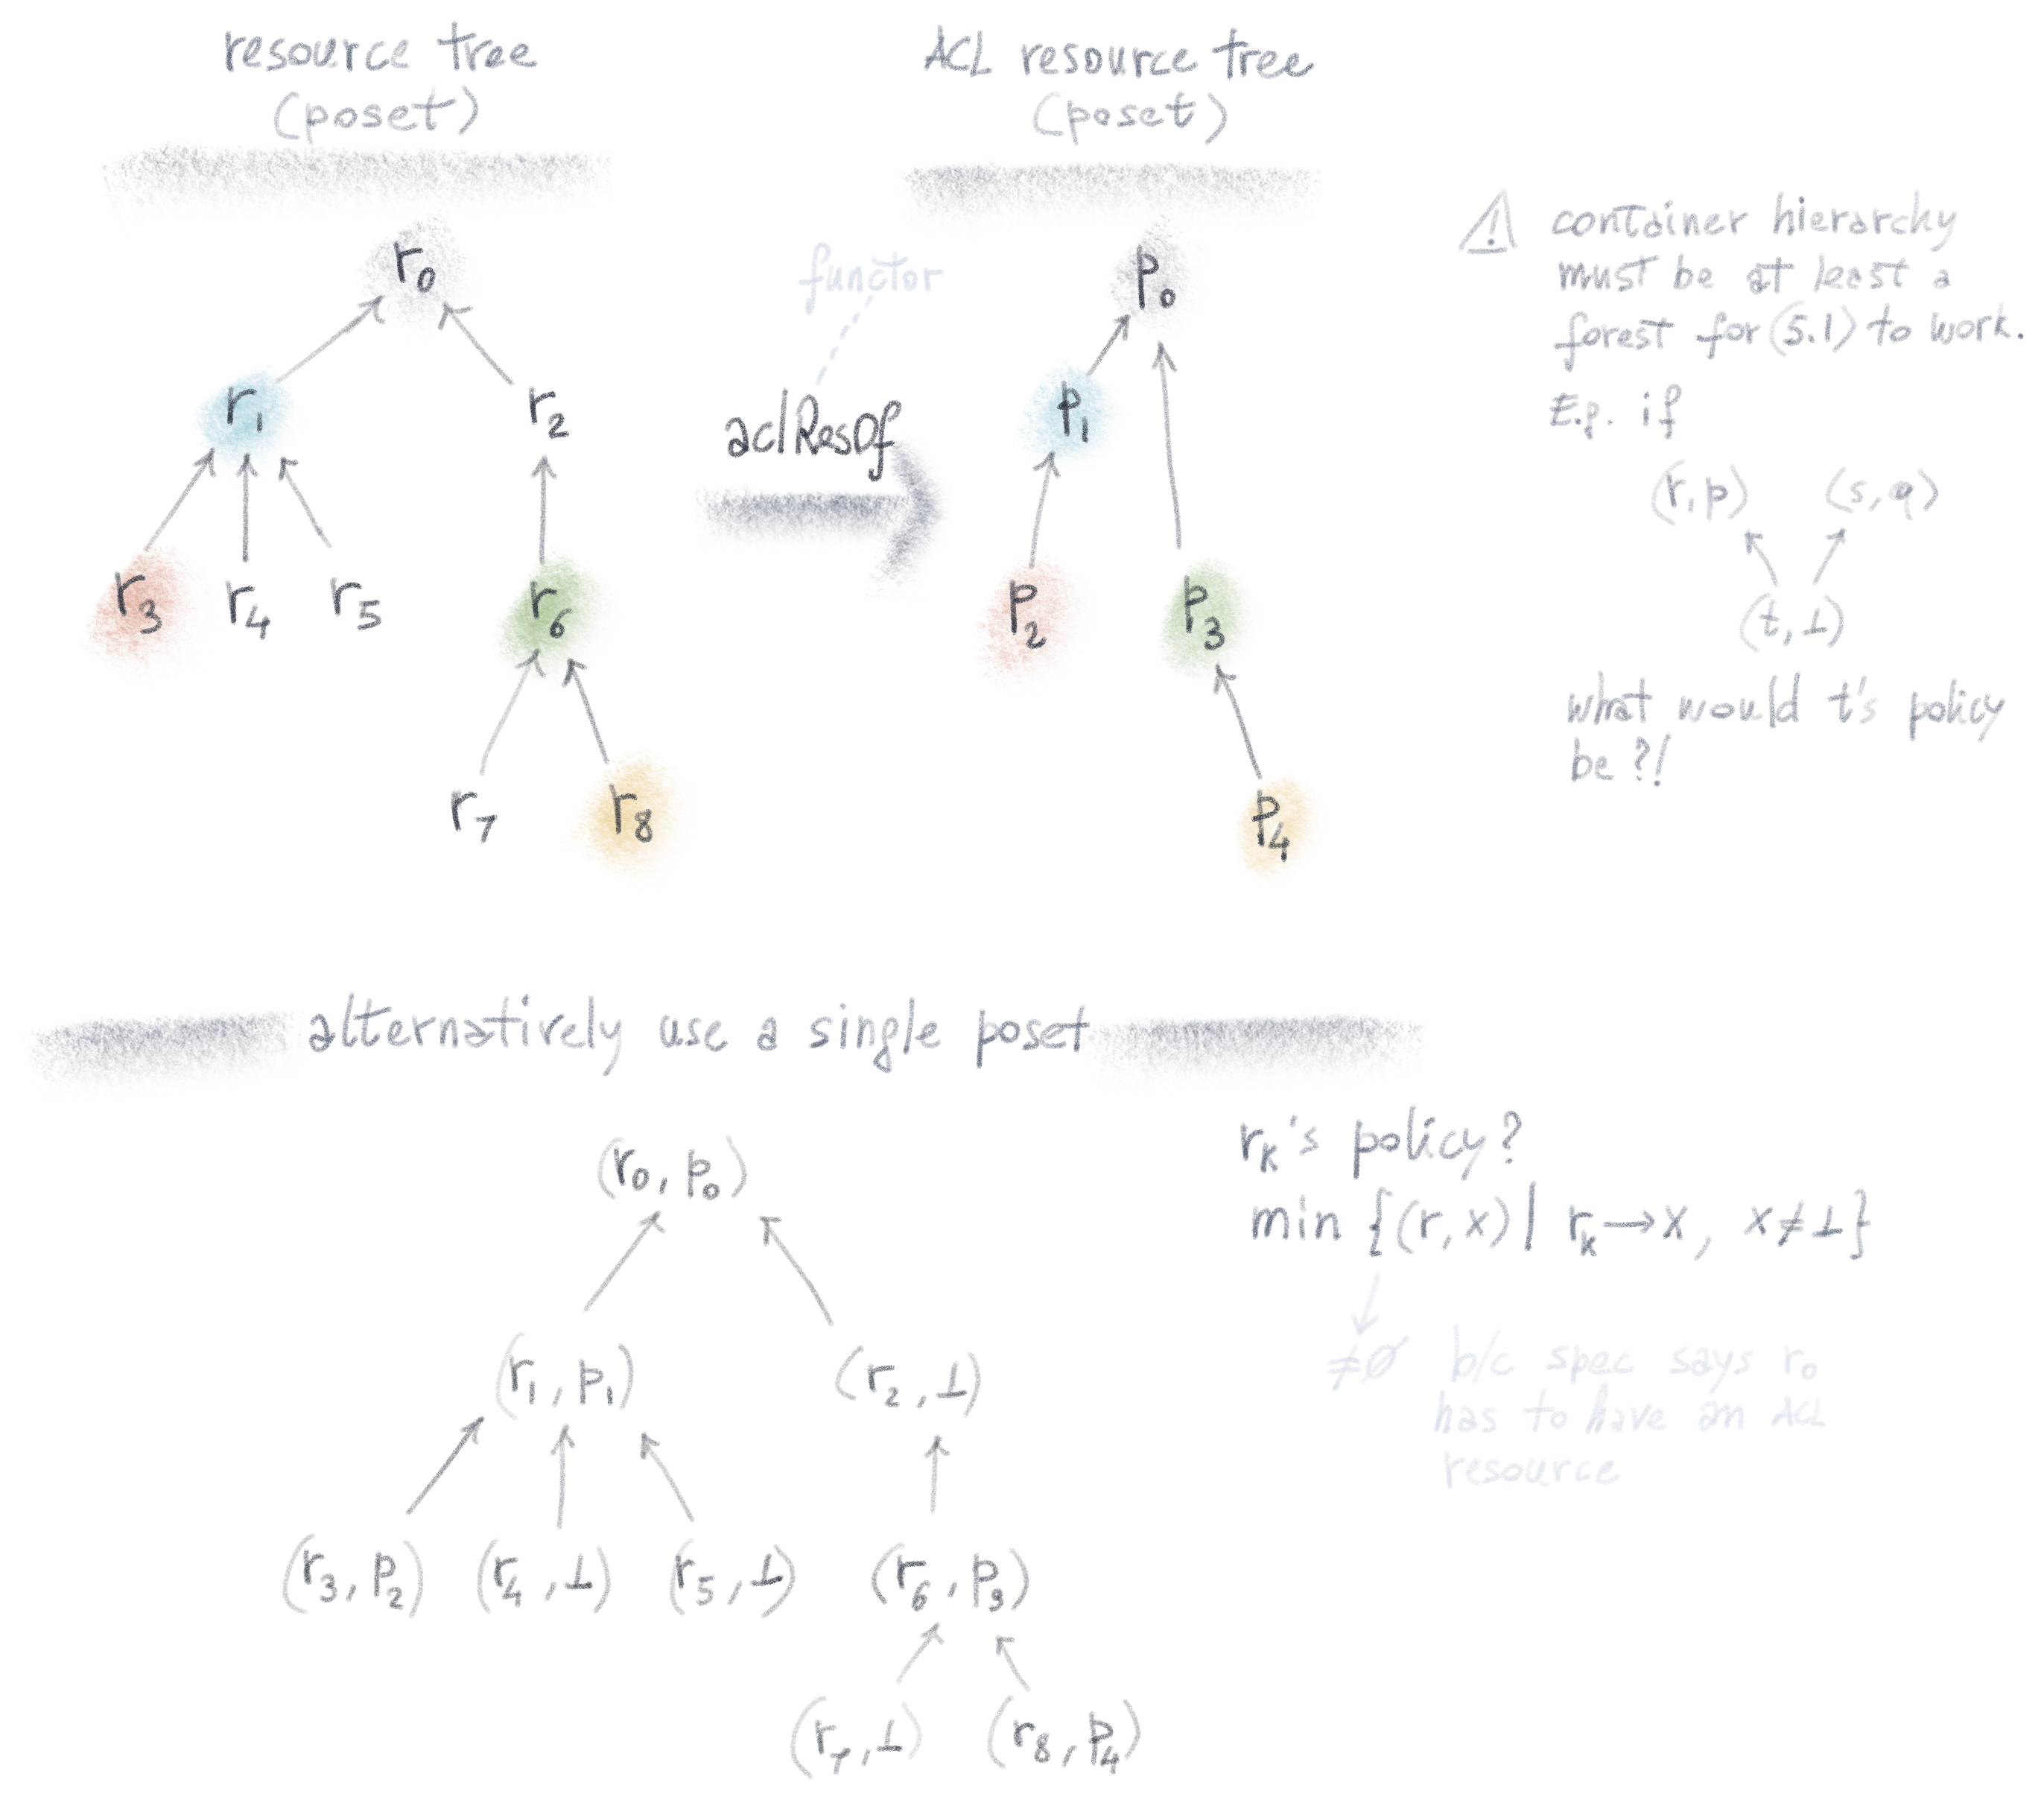 resource tree
(poset)
ACL resource tree
(poset)
r₀
r₁
r₂
r₃
r₄
r₅
r₆
r₇
r₈
functor
aclResOf
p₀
p₁
p₂
p₃
p₄
⚠ container hierarchy
must be at least a
forest for (5.1) to work.
E.g. if
(r,p) (s,q)
(t,⊥)
what would t's policy
be?!
alternatively use a single poset
(r₀, p₀)
(r₁, p₁) (r₂, ⊥)
(r₃, p₂) (r₄, ⊥) (r₅, ⊥) (r₆, p₃)
(r₇, ⊥) (r₈, p₄)
rₖ's policy?
min {(r, x) | rₖ → x, x ≠ ⊥}
≠∅ b/c spec says r₀
has to have an ACL
resource